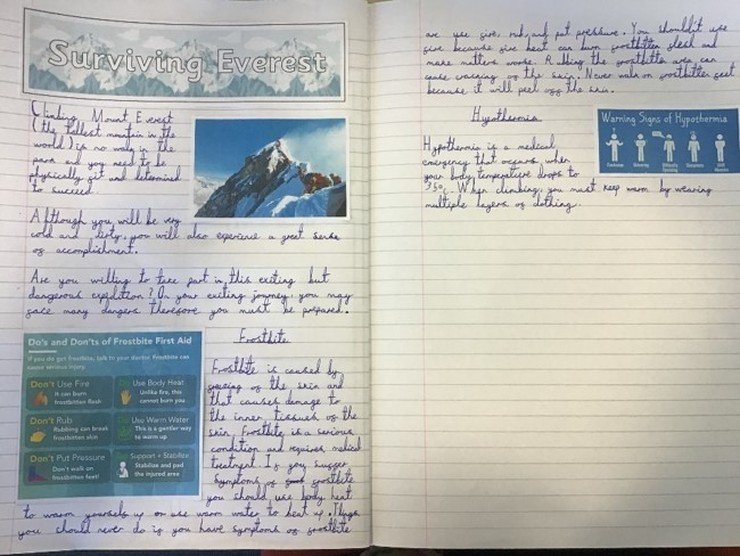 Surviving Everest
Climbing Mount Everest
(the tallest mountain in the
world) is no walk in the
park and you need to be
physically fit and determined
to succeed.
Although you will be very
cold and dirty, you will also experience a great sense
of accomplishment.
Are you willing to take part in this exiting but
dangerous expidition? On your exiting journey, you may
face many dangers therefore you must be prepared.
Do's and Don'ts of Frostbite First Aid
If you do get frostbite, talk to your doctor. Frostbite can
cause serious injury.
Don't Use Fire
It can burn
frostbitten flesh
Do Use Body Heat
Unlike fire, this
cannot burn you.
Don't Rub
Rubbing can break
frostbitten skin
Do Use Warm Water
This is a gentler way
to warm up
Don't Put Pressure
Don't walk on
frostbitten feet!
Support + Stabilize
Stabilize and pad
the injured area
Frostbite
Frostbite is caused by
freezing of the skin and
that causes damage to
the inner tissues of the
skin. Frostbite is a serious
condition and requires medical
treatment. If you suffer
symptoms of frostbite
you should use body heat
to warm yourself up or use warm water to heat up. Things
you should never do if you have symptoms of frostbite
are use fire, rub, and put pressure. You shouldn't use
fire because fire heat can burn frostbitten flesh and
make matters worse. Rubbing the frostbitten area can
cause cracking of the skin. Never walk on frostbitten feet
because it will peel off the skin.
Hypothermia
Warning Signs of Hypothermia
Confusion
Shivering
Difficulty
Speaking
Sleepiness
Stiff
Muscles
Hypothermia is a medical
emergency that occurs when
your body temperature drops to
35°c. When climbing, you must keep warm by wearing
multiple layers of clothing.